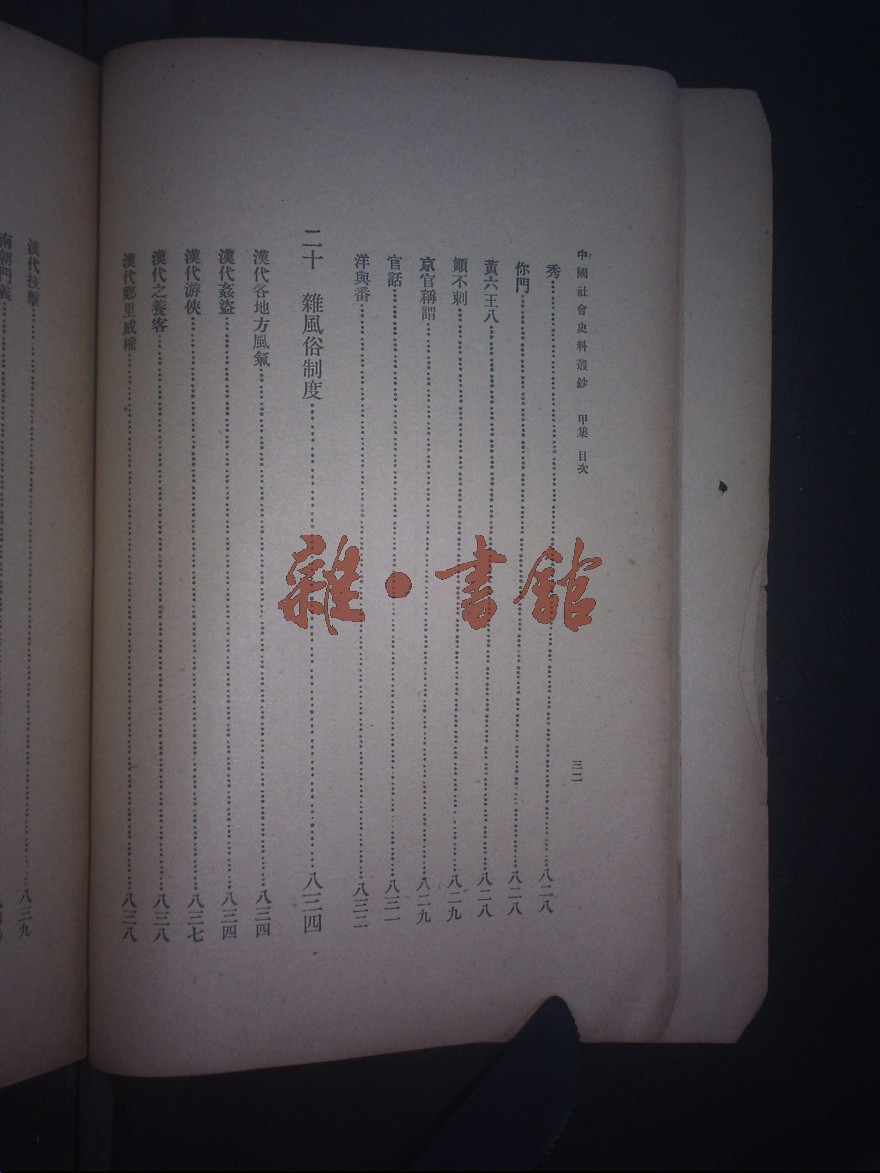 中國社會史料叢鈔 甲集 目次 三二
秀……八二八
你門……八二八
黃六王八……八二八
顛不剌……八二九
京官稱謂……八二九
官話……八三一
洋與番……八三二
二十 雜風俗制度……八三四
漢代各地方風氣……八三四
漢代姦盜……八三四
漢代游俠……八三七
漢代之養客……八三八
漢代鄉里威權……八三八
漢代技擊……八三九
南朝門義
雜·書館